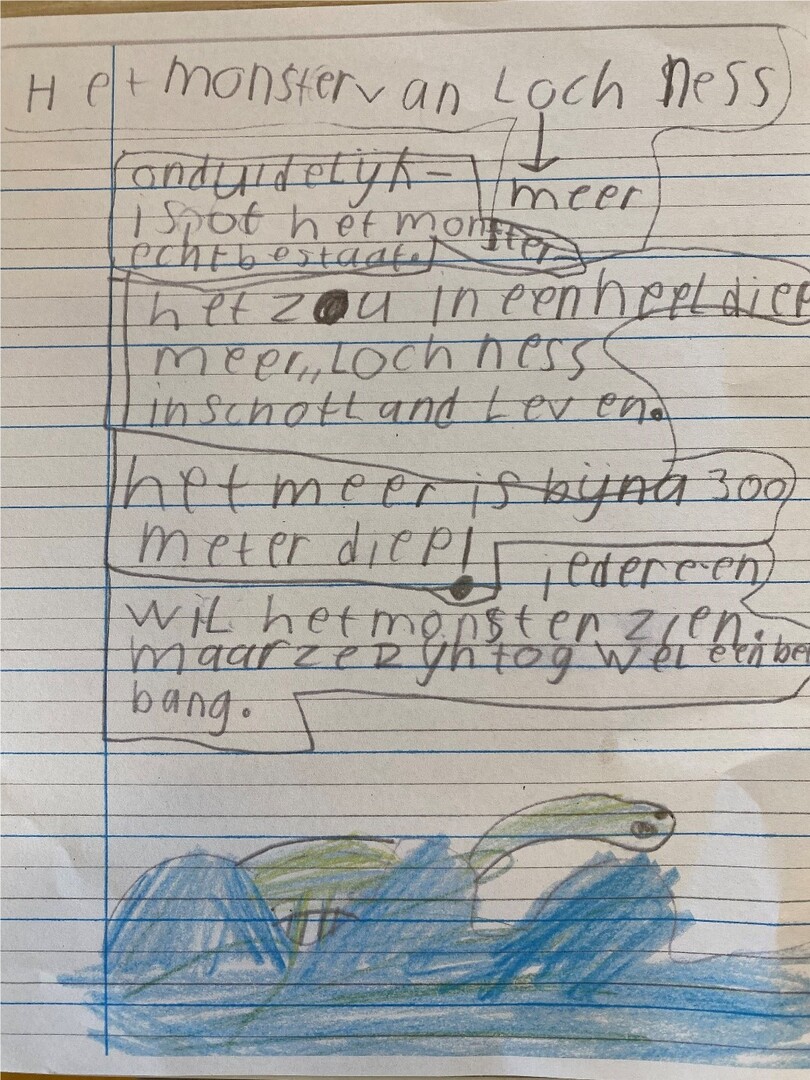 Het monster van Loch Ness
onduidelijk-
meer
is, of het monster
echt bestaat.
het zou in een heel diep
meer,, Loch ness
in schotland Leven.
het meer is bijna 300
meter diep!
iedereen
wil het monster zien.
maar ze zyn tog wel een be
bang.